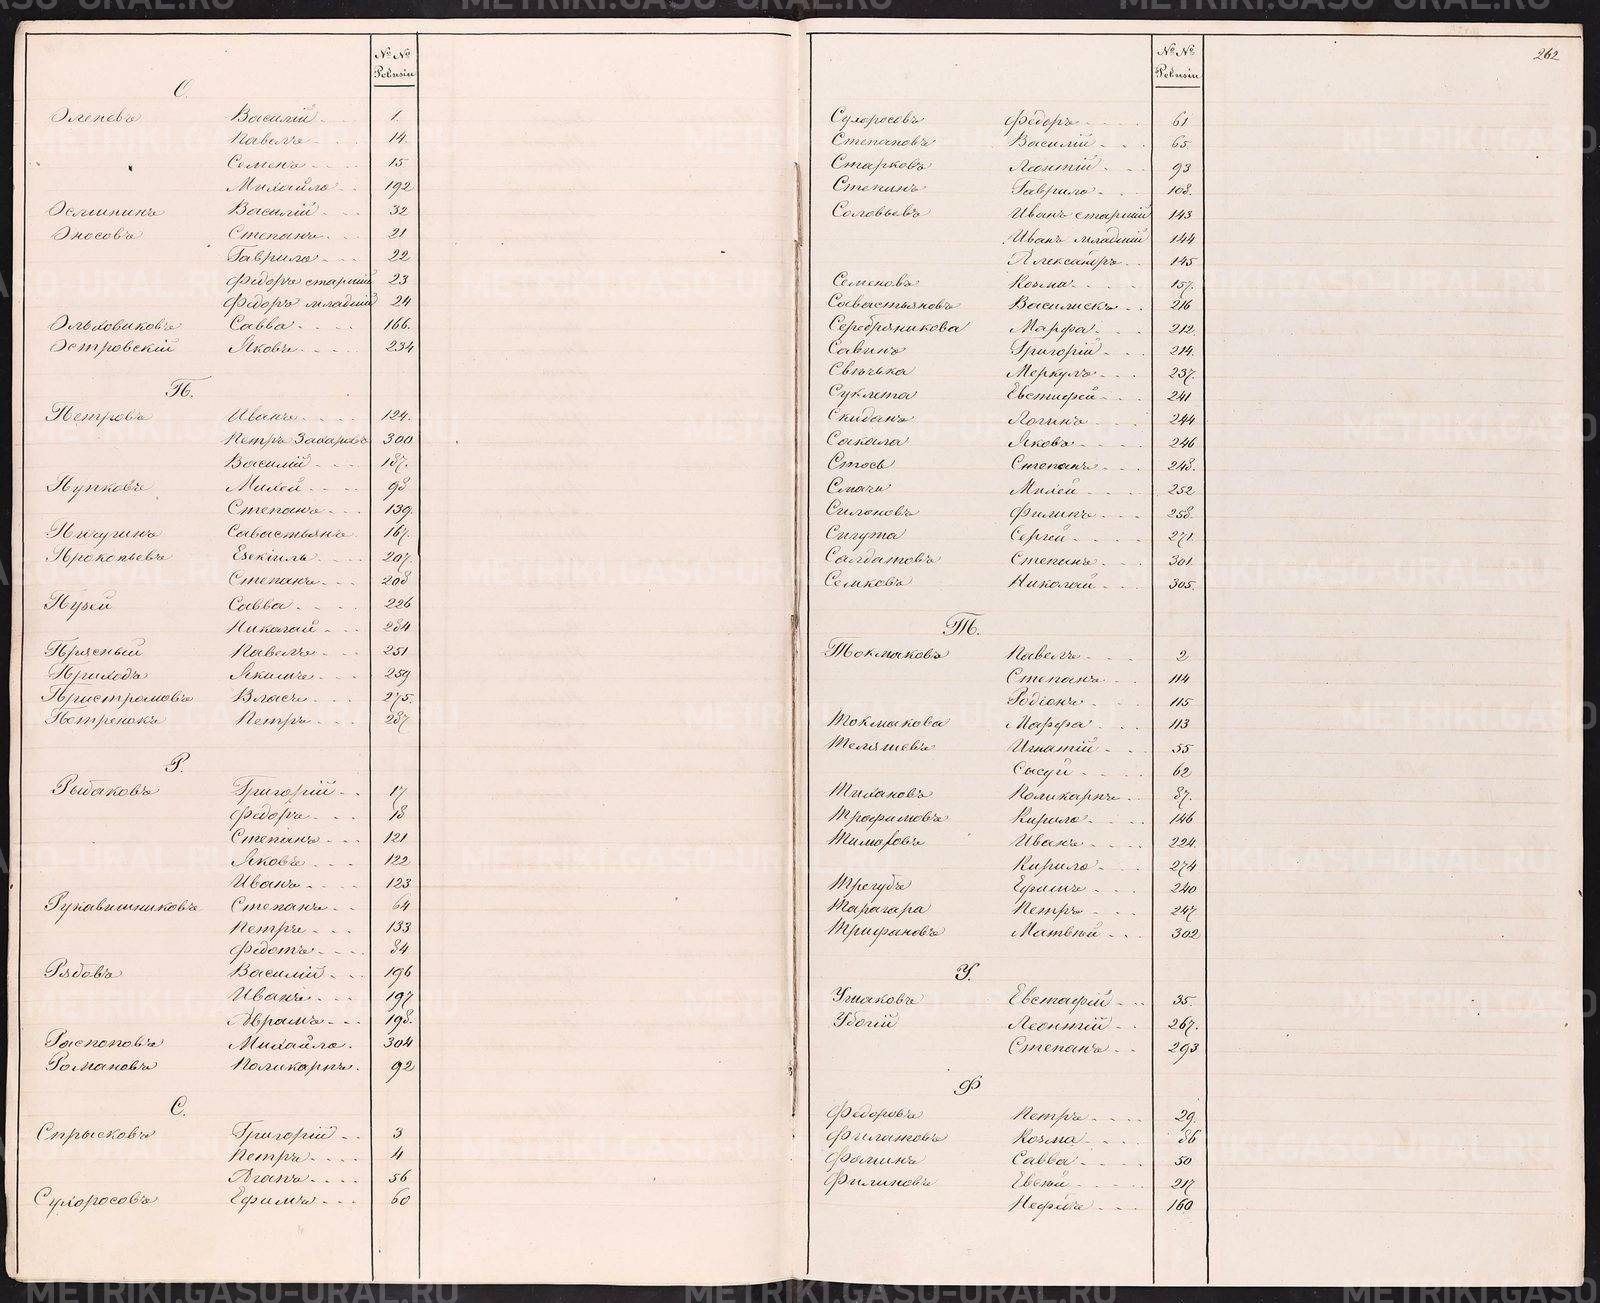 № №
Ревизiи
О.
Оленевъ Василiй 1.
Павелъ 14.
Семенъ 15
Михайло 192
Осминитъ Василiй 32
Оносовъ Степанъ 21
Гаврило 22
Федоръ старшiй 23
Федоръ младшiй 24
Ольховиковъ Савва 166.
Островскiй Яковъ 234
П.
Петровъ Иванъ 124.
Петръ Захаровъ 300
Василiй 187.
Пупковъ Михей 98
Степанъ 139.
Пичугинъ Савастьянъ 167.
Прокопьевъ Езекiиль 207.
Степанъ 208
Пузей Савва 226
Николай 284
Пресный Павелъ 251
Приходъ Якимъ 259
Пристромовъ Власъ 275.
Петренокъ Петръ 287
Р.
Рыбаковъ Григорiй 17
Федоръ 18
Степанъ 121
Яковъ 122
Иванъ 123
Рукавишниковъ Степанъ 64
Петръ 133
Федотъ 84
Рябовъ Василiй 196
Иванъ 197
Аврамъ 198.
Распоповъ Михайло. 304
Романовъ Поликарпъ. 92
С.
Спрысковъ Григорiй 3
Петръ 4
Агапъ 56
Сухоросовъ Ефимъ 60
262
№ №
Ревизiи
Сухоросовъ Федоръ 61
Степановъ Василiй 65
Старковъ Леонтiй 93
Степинъ Гаврило 108.
Соловьевъ Иванъ старшiй 143
Иванъ младшiй 144
Александръ 145
Семеновъ Козма 157.
Савастьяновъ Василискъ 216
Серебряникова Марфа 212.
Савинъ Григорiй 214.
Свѣчька Меркулъ 237.
Суклета Евстифей 241
Скиданъ Логинъ 244
Сакала Яковъ 246
Стось Степанъ 248.
Смага Михей 252
Силоновъ Филипъ 258.
Сигута Сергей 271
Салдатовъ Степанъ 301
Семковъ Николай 305.
Т.
Токмаковъ Павелъ 2
Степанъ 114
Родiонъ 115
Токмакова Марфа 113
Телешевъ Игнатiй 55
Сысуй 62
Тихановъ Поликарпъ 87.
Трофимовъ Кирило 146
Тимофовъ Иванъ 224.
Кирило 274
Трегубъ Ефимъ 240
Тарагара Петръ 247
Трифановъ Матвѣй 302
У.
Ушаковъ Евстафiй 35.
Убогiй Леонтiй 267.
Степанъ 293
Ф
Федоровъ Петръ 29.
Филатовъ Козма 86
Фоминъ Савва 50
Филиновъ Евсѣй 217
Нефедъ 160